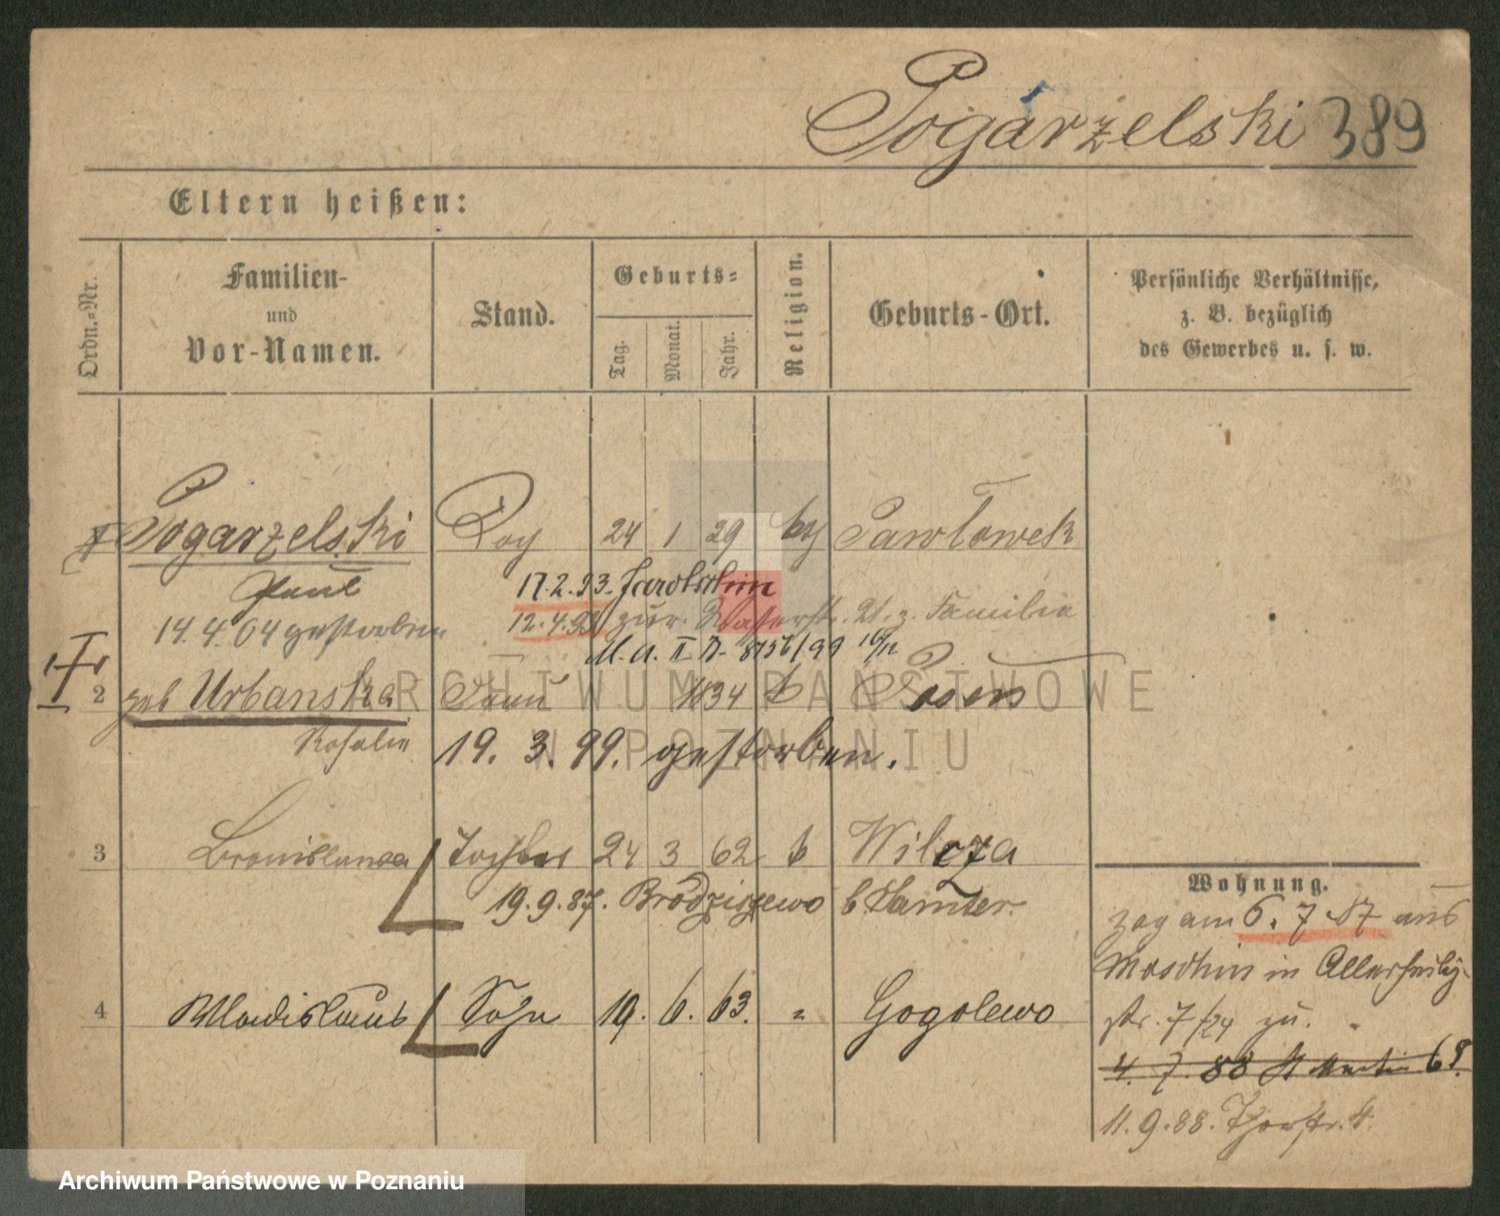 Pogarzelski 389
Eltern heißen:
Ordn.-Nr.
Familien-
und
Vor-Namen.
Stand.
Geburts-
Tag.
Monat.
Jahr.
Religion.
Geburts-Ort.
Persönliche Verhältnisse,
z. B. bezüglich
des Gewerbes u. s. w.
Pogarzelski 24 1 29 Pawlowek
Paul 17.2.93. Jarotschin
14.4.04 gestorben 12.4.93 zur z. Familie
M. A. II 99
2 geb Urbanska Frau 1834 k Posen
Rosalie 19. 3. 99. gestorben.
3 Bronislawa Tochter 24 3 62 k Wilcza
19.9.87. Brodziszewo b Samter.
4 Wladislaus Sohn 19. 6. 63. " Gogolewo
Wohnung.
zog am 6. 7 87 aus
Moschin in Allerheilig-
str. 7/24 zu.
4. 7. 88 St Martin 68.
11. 9. 88. Thorstr. 4.
ARCHIWUM PAŃSTWOWE
W POZNANIU
Archiwum Państwowe w Poznaniu